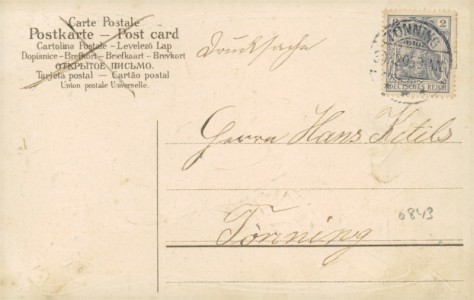 Carte Postale
Postkarte — Post card
Cartolina Postale - Levelező Lap
Dopisnice - Brefkort - Briefkaart - Brevkort
ОТКРЫТОЕ ПИСЬМО.
Tarjeta postal — Cartão postal
Union postale Universelle.
Drucksache
2
TÖNNING
DEUTSCHES REICH
Herrn Hans
Tönning
6843